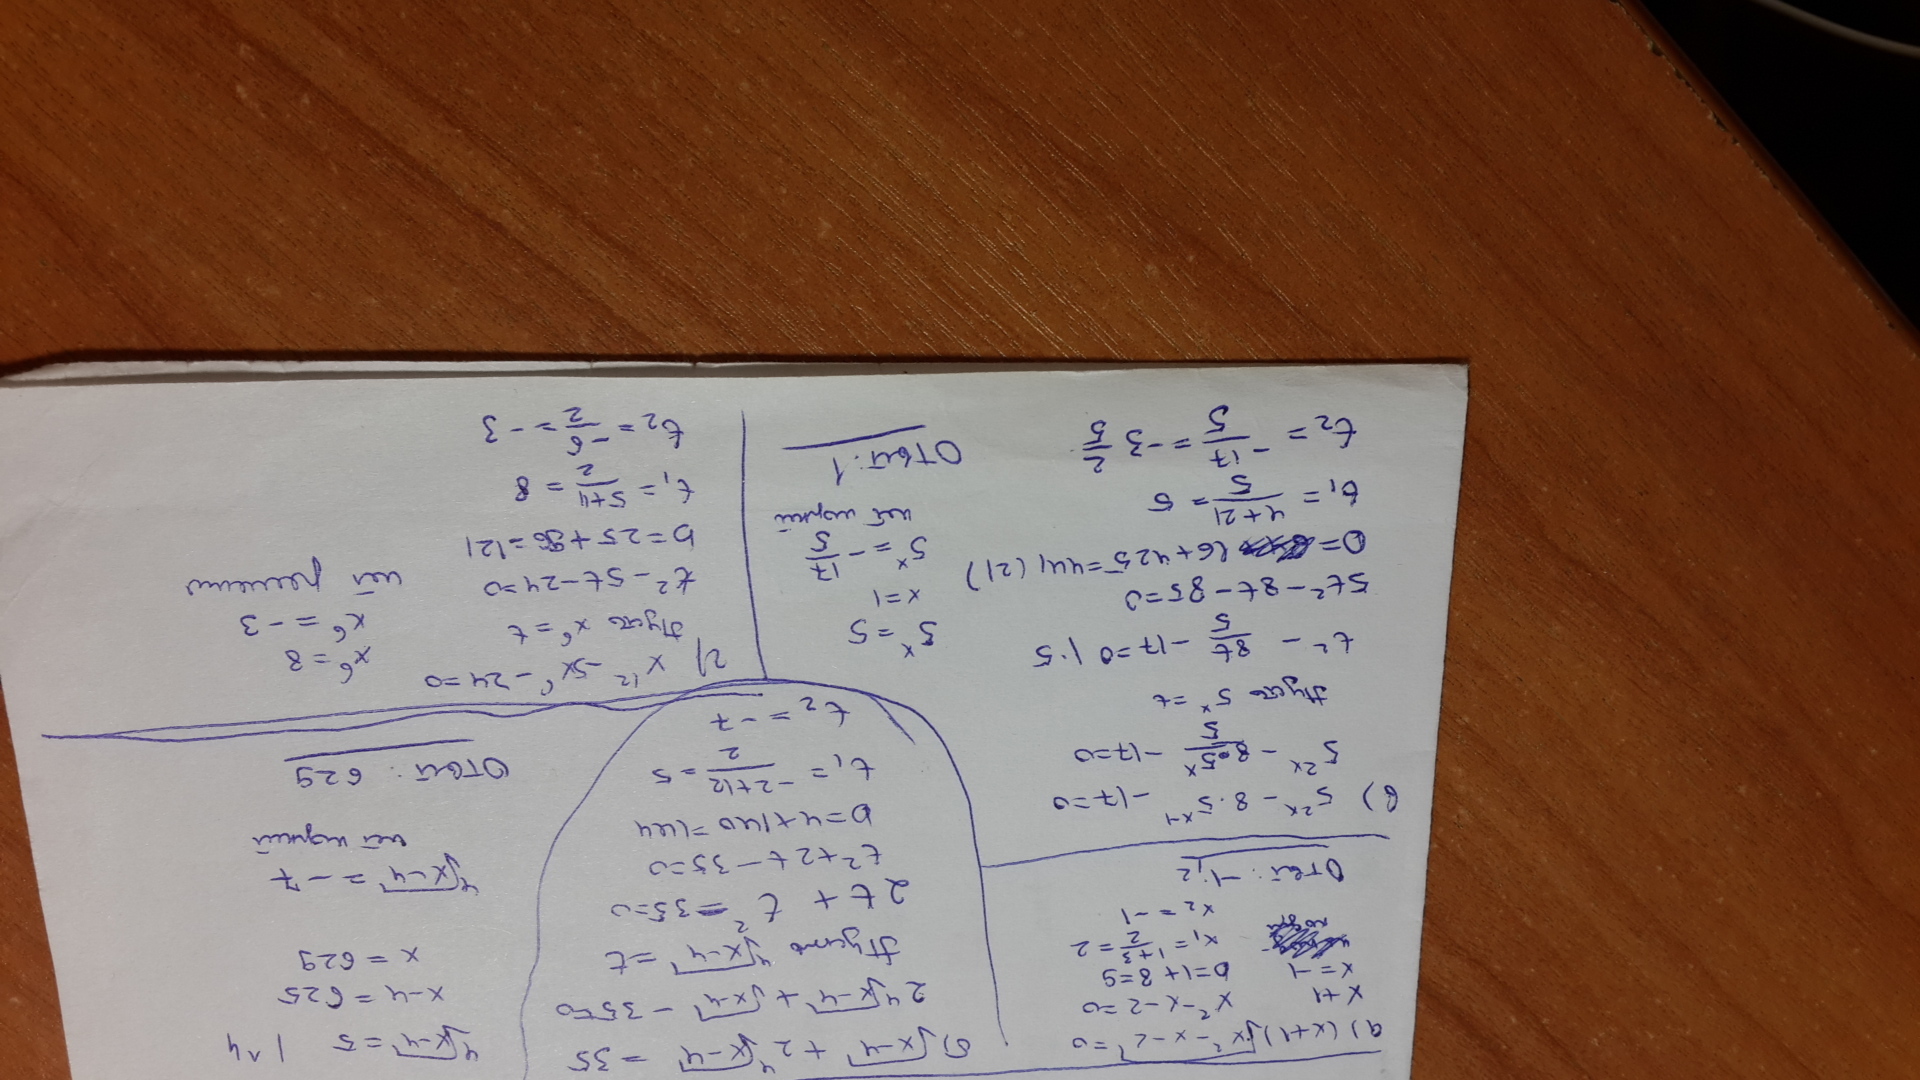 а) (x+1)√x²-x-2 = 0
x+1
x=-1
x²-x-2=0
D=1+8=9
x₁ = 1+3/2 = 2
x₂ = -1
Ответ: -1; 2
б) √x-4 + 2 ⁴√x-4 = 35
2 ⁴√x-4 + √x-4 - 35=0
Пусть ⁴√x-4 = t
2t + t² - 35=0
t²+2t-35=0
D=4+140=144
t₁ = -2+12/2 = 5
t₂ = -7
⁴√x-4 = 5 | ^4
x-4 = 625
x = 629
⁴√x-4 = -7
нет корней
Ответ: 629
в) 5²ˣ - 8·5ˣ⁻¹ - 17=0
5²ˣ - 8·5ˣ/5 - 17=0
Пусть 5ˣ = t
t² - 8t/5 - 17=0 |·5
5t² - 8t - 85=0
D= 16+425=441 (21)
t₁ = 4+21/5 = 5
t₂ = -17/5 = -3 2/5
5ˣ = 5
x=1
5ˣ = -17/5
нет корней
Ответ: 1
г) x¹² - 5x⁶ - 24=0
Пусть x⁶ = t
t² - 5t - 24=0
D=25+96=121
t₁ = 5+11/2 = 8
t₂ = -6/2 = -3
x⁶ = 8
x⁶ = -3
нет решений